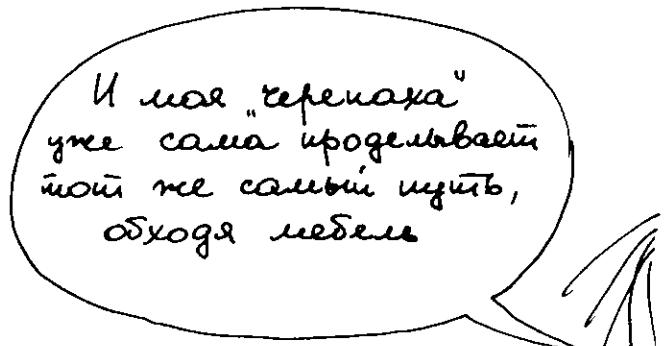 И моя „черепаха“
уже сама проделывает
тот же самый путь,
обходя мебель